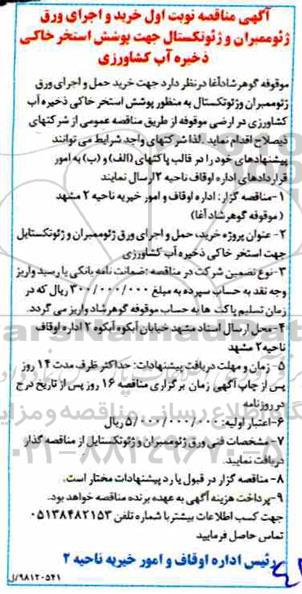 آگهی مناقصه نوبت اول خرید و اجرای ورق
ژئوممبران و ژئوتکستال جهت پوشش استخر خاکی
ذخیره آب کشاورزی
موقوفه گوهرشادآغا در نظر دارد جهت خرید حمل و اجرای ورق
ژئوممبران وژئوتکستال به منظور پوشش استخر خاکی ذخیره آب
کشاورزی در ارضی موقوفه از طریق مناقصه عمومی از شرکتهای
ذیصلاح اقدام نماید. لذا شرکتهای واجد شرایط می توانند
پیشنهادهای خود را در قالب پاکتهای (الف) و (ب) به امور
قراردادهای اداره اوقاف ناحیه ۲ ارسال نمایند
۱-مناقصه گزار: اداره اوقاف و امور خیریه ناحیه ۲ مشهد
(موقوفه گوهرشاد آغا)
۲- عنوان پروژه خرید، حمل و اجرای ورق ژئوممبران و ژئوتکستایل
جهت استخر خاکی ذخیره آب کشاورزی
۳-نوع تضمین شرکت در مناقصه: ضمانت نامه بانکی یا رسید واریز
وجه نقد به حساب سپرده به مبلغ ۳۰۰/۰۰۰/۰۰۰ ریال که در
زمان تسلیم پاکت ها به حساب موقوفه گوهرشاد واریز می گردد.
۴-محل ارسال اسناد مشهد خیابان آبکوه آبکوه ۲ اداره اوقاف
ناحیه۲ مشهد
۵- زمان و مهلت دریافت پیشنهادات: حداکثر ظرف مدت ۱۴ روز
پس از چاپ آگهی زمان برگزاری مناقصه ۱۶ روز پس از تاریخ درج
در روزنامه
۶-اعتبار اولیه: ۵/۰۰۰/۰۰۰/۰۰۰ ریال
۷-مشخصات فنی ورق ژئوممبران و ژئوتکستایل از مناقصه گذار
دریافت نمایید.
۸-مناقصه گزار در قبول یا رد پیشنهادات مختار است.
۹-پرداخت هزینه آگهی به عهده برنده مناقصه خواهد بود.
جهت کسب اطلاعات بیشتر با شماره تلفن ۰۵۱۳۸۴۸۲۱۵۳
تماس حاصل فرمایید
رئیس اداره اوقاف و امور خیریه ناحیه ۲
۹۸۱۲۰۵۴۱/ل